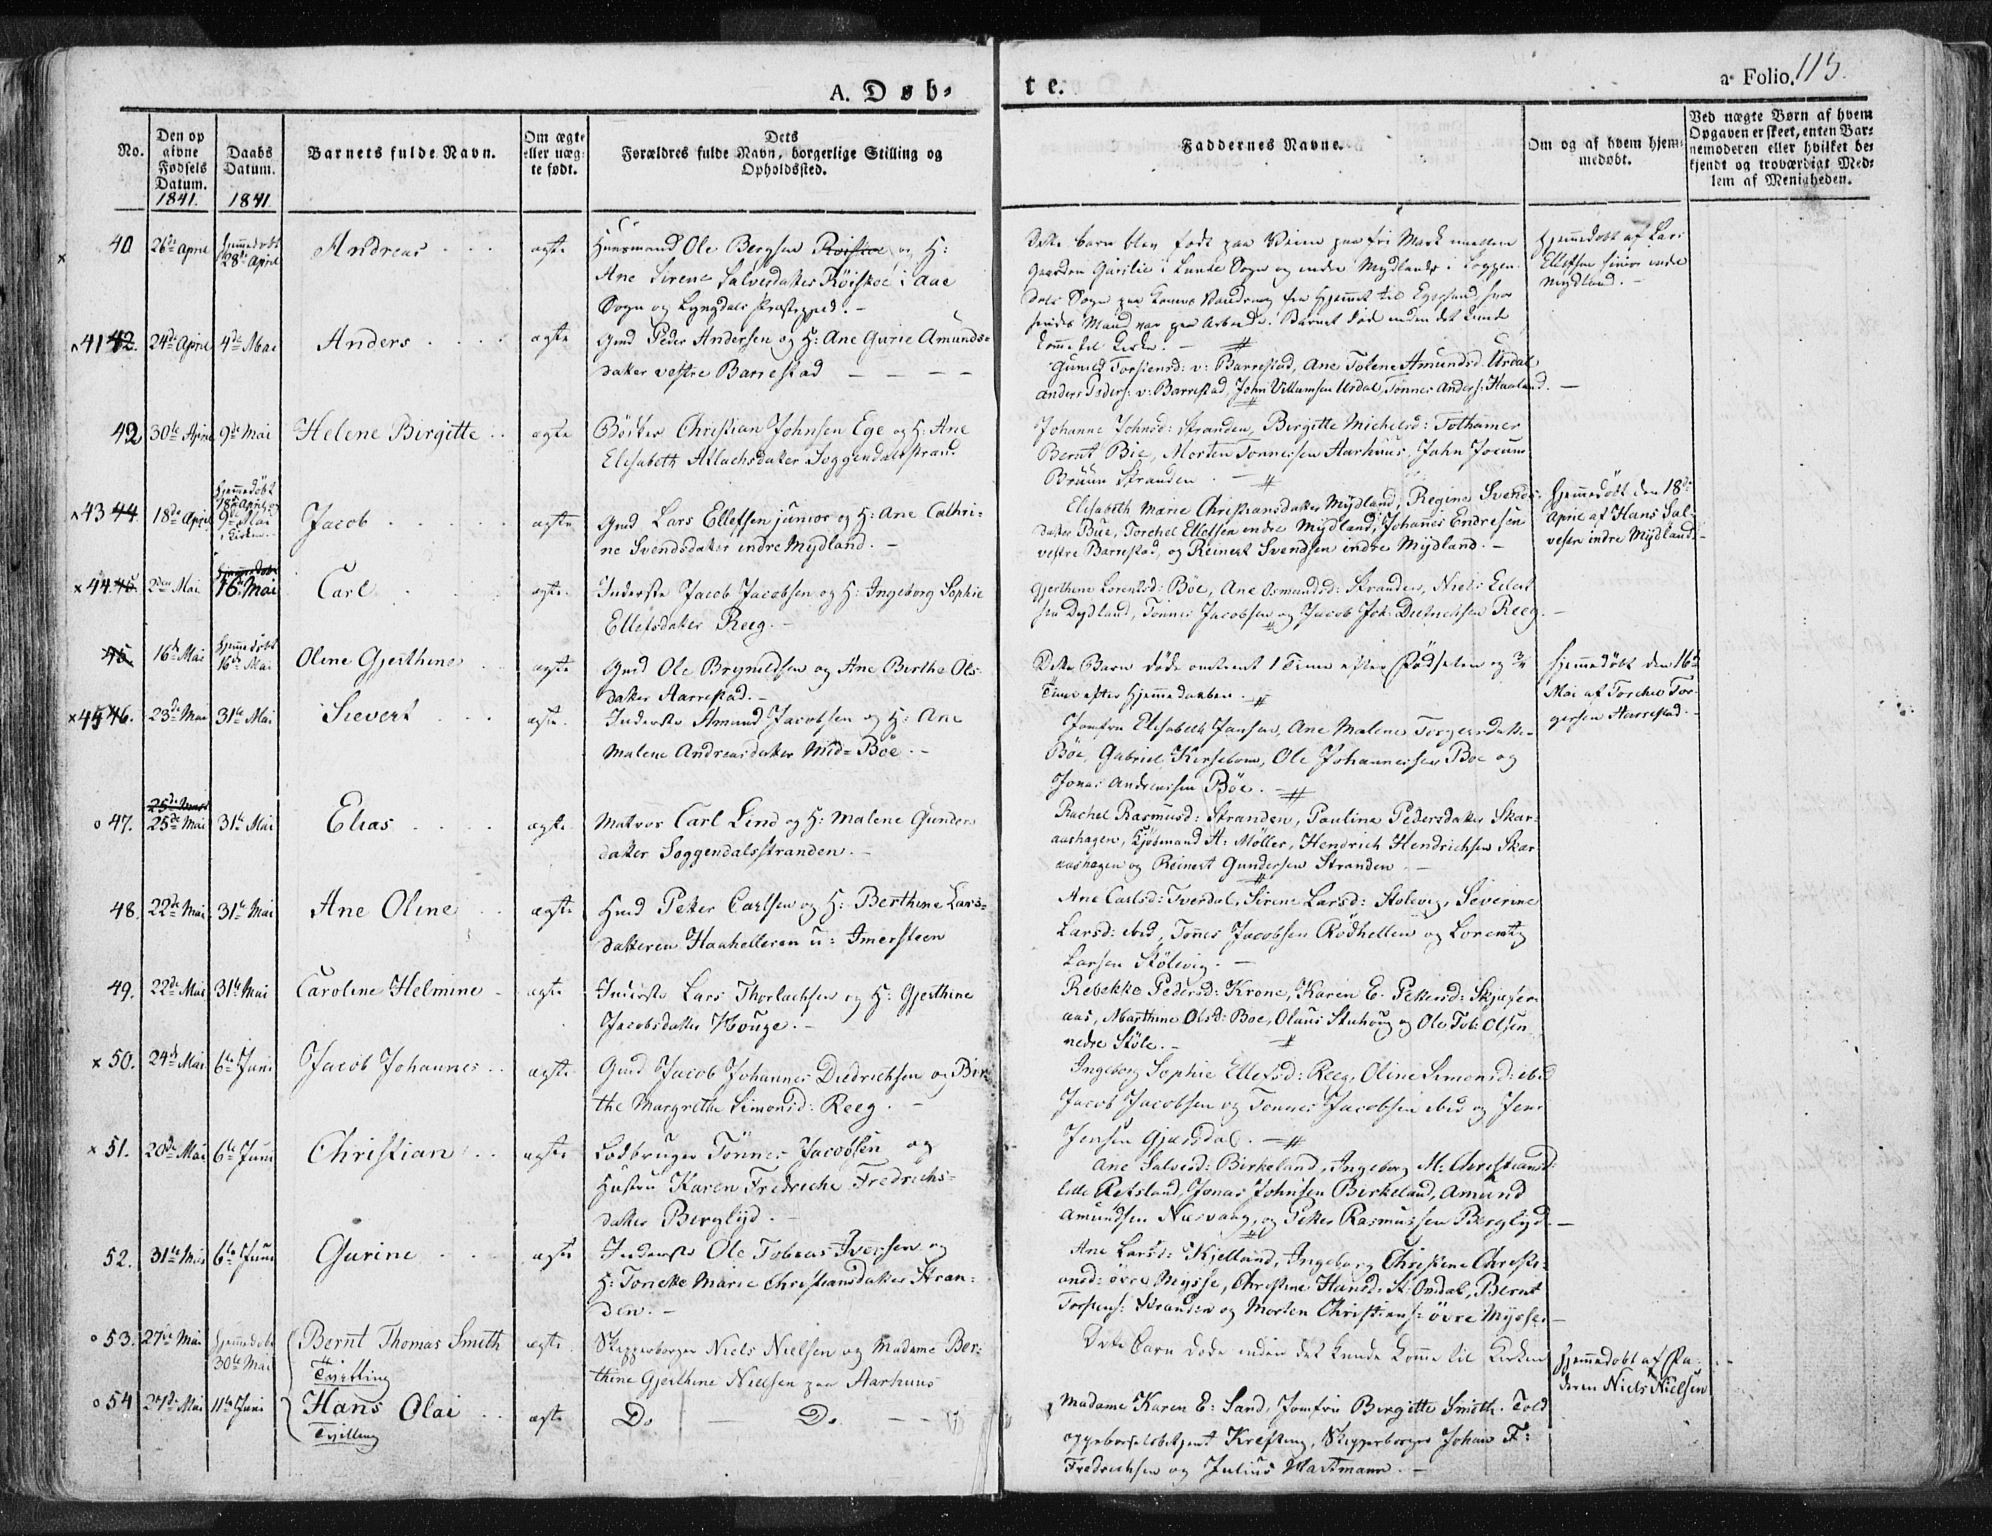 A. Døb-
te.
a. Folio. 115.
No.
Den op
givne
Fødsels
Datum.
1841.
Daabs
Datum.
1841
Barnets fulde Navn.
Om ægte
eller uæg-
te født.
Dets
Forældres fulde Navn, borgerlige Stilling og
Opholdssted.
Faddernes Navne.
Om og af hvem hjem-
medøbt.
Ved uægte Børn af hvem
Opgaven er skeet, enten Bar-
nemoderen eller hvilket be-
kjendt og troværdigt Med-
lem af Menigheden.
40 26de April Hjemmedøbt
28de April
Andreas
ægte
Huusmand Ole Bergsen Röiskoe og H:
Ane Sirene Salvesdatter Röiskoe i Aae
Sogn og Lyngdals Præstegjeld.
Dette barn blev født paa Veien paa fri Mark mellem
Gaarden i Lunde Sogn og indre Mydlands i Soggen-
dals Sogn paa Konens Vandring fra Hjemmet til Egersund hvor
hendes Mand var paa Arbeide. Barnet døde inden det kunde
komme til Kirke.
Hjemmedøbt af Lars
Ellefsen senior indre
Mydland.
41 42. 24de April 4de Mai
Anders
ægte
Gmd Peder Andersen og H: Ane Gurie Amunds-
datter vestre Barrestad
Gunild Torstensd: v: Barrestad, Ane Tolene Amundsd. Urdal
Anders Peders: v: Barrestad, John Villumsen Urdal, Tønnes Anders: Haaland.
42 30te April 9de Mai
Helene Birgitte
ægte
Bödker Christian Johnsen Ege og H: Ane
Elisabeth Atlachsdatter Soggendalsstrand
Johanne Johnsd: Stranden, Birgitte Michelsd: Tothamer
Bernt Bie, Morten Tønnessen Aarhuus, John Jocum
Bruun Stranden.
43 44 18de April Hjemmedøbt
18de April
9de Mai
i Kirken
Jacob
ægte
Gmd Lars Ellefsen junior og H: Ane Cathri-
ne Svendsdatter indre Mydland.
Elisabeth Marie Christiansdatter Mydland, Regine Svends-
datter Bue, Torchel Ellefsen indre Mydland, Johannes Endresen
vestre Barrestad, og Reinert Svendsen indre Mydland.
Hjemmedøbt den 18de
April af Hans Sal-
vesen indre Mydland.
44 45. 2den Mai Hjemmedøbt
16de Mai
Carl
ægte
Inderste Jacob Jacobsen og H: Ingeborg Sophie
Ellefsdatter Reeg.
Gjerthine Lorentsd: Böe, Ane Osmundsd: Stranden, Niels
sen Dydland, Tønnes Jacobsen og Jacob Joh: Diedrichsen Reeg.
45. 16de Mai Hjemmedøbt
16de Mai
Oline Gjerthine
ægte
Gmd Ole Brynildsen og Ane Berthe Ols-
datter Aarrestad.
Dette Barn døde omtrent 1 Time efter Fødselen og 3/4
Time efter Hjemmedaaben.
Hjemmedøbt den 16de
Mai af Torchel Tor-
gersen Aarrestad.
45 46. 23de Mai 31te Mai
Sievert
ægte
Inderste Amund Jacobsen og H: Ane
Malene Andreasdatter Mid-Böe.
Jomfru Elisabeth Jansen, Ane Malene Torgersdatter
Böe, Gabriel Kirsebom, Ole Johannessen Boe og
Jonas Andreassen Böe.
47. 25de Mars
25de Mai 31te Mai
Elias
ægte
Matros Carl Lind og H: Malene Gunders
datter Soggendalsstranden.
Rachel Rasmusd: Stranden, Pauline Pedersdatter Skar-
aashagen, Kjöbmand A: Möller, Hendrich Hendrichsen Skar-
aashagen og Reinert Gundersen Stranden.
48. 22de Mai 31te Mai
Ane Oline
ægte
Hmd Petter Carlsen og H: Berthine Lars-
datteren Haahelleren u: Imersteen
Ane Carlsd: Tverdal, Sirene Larsd: Stølevig, Severine
Larsd: ibid, Tønnes Jacobsen Rödhellen og Lorents
Larsen Stölevig.
49. 22de Mai 31te Mai
Caroline Helmine
ægte
Inderste Lars Thorlachsen og H: Gjerthine
Jacobsdatter Houge.
Rebekke Pedersd: Krone, Karen E. Pettersd: Skjæfer-
aas, Marthine Olsd: Boe, Olaus Stuhoug og Ole Tob: Olsen
nedre Stöle.
50. 24de Mai 6te Juni
Jacob Johannes
ægte
Gmd Jacob Johannes Diedrichsen og Bir-
the Margrethe Simonsd: Reeg.
Ingeborg Sophie Ellefsd: Reeg, Oline Simonsd: ibid
Jacob Jacobsen og Tønnes Jacobsen ibid og Jens
Jensen Gjæsdal.
51. 20de Mai 6te Juni
Christian
ægte
Lodbruger Tönnes Jacobsen og
Hustru Karen Fredriche Fredrichs-
datter Berglyd.
Ane Salvesd: Birkeland, Ingeborg M: Christiansd:
lille Refsland, Jonas Johnsen Birkeland, Amund
Amundsen Næsvaag, og Petter Rasmussen Berglyd.
52. 31te Mai 6te Juni
Gurine
ægte
Inderste Ole Tobias Iversen og
H: Tonette Marie Christiansdatter Stran-
den.
Ane Larsd: Kjelland, Ingeborg Christine Christi-
ansd: övre Mysse, Christine Hansd: St: Omdal, Bernt
Torstens: Stranden og Morten Christians: övre Mysse.
53. 27de Mai Hjemmedøbt
30te Mai
Bernt Thomas Smith
Tvilling
ægte
Skipperborger Niels Nielsen og Madame Ber-
thine Gjerthine Nielsen paa Aarhuus
Dette Barn døde inden det kunde komme til Kirken
Hjemmedøbt af Fa-
deren Niels Nielsen
54 27de Mai 11te Juni
Hans Olai
Tvilling
ægte
Do Do
Madame Karen E: Sand, Jomfru Birgitte Smith. Told
oppebørselsbetjent Krefting, Skipperborger Johan F:
Fredrichsen og Julius Wartmann.